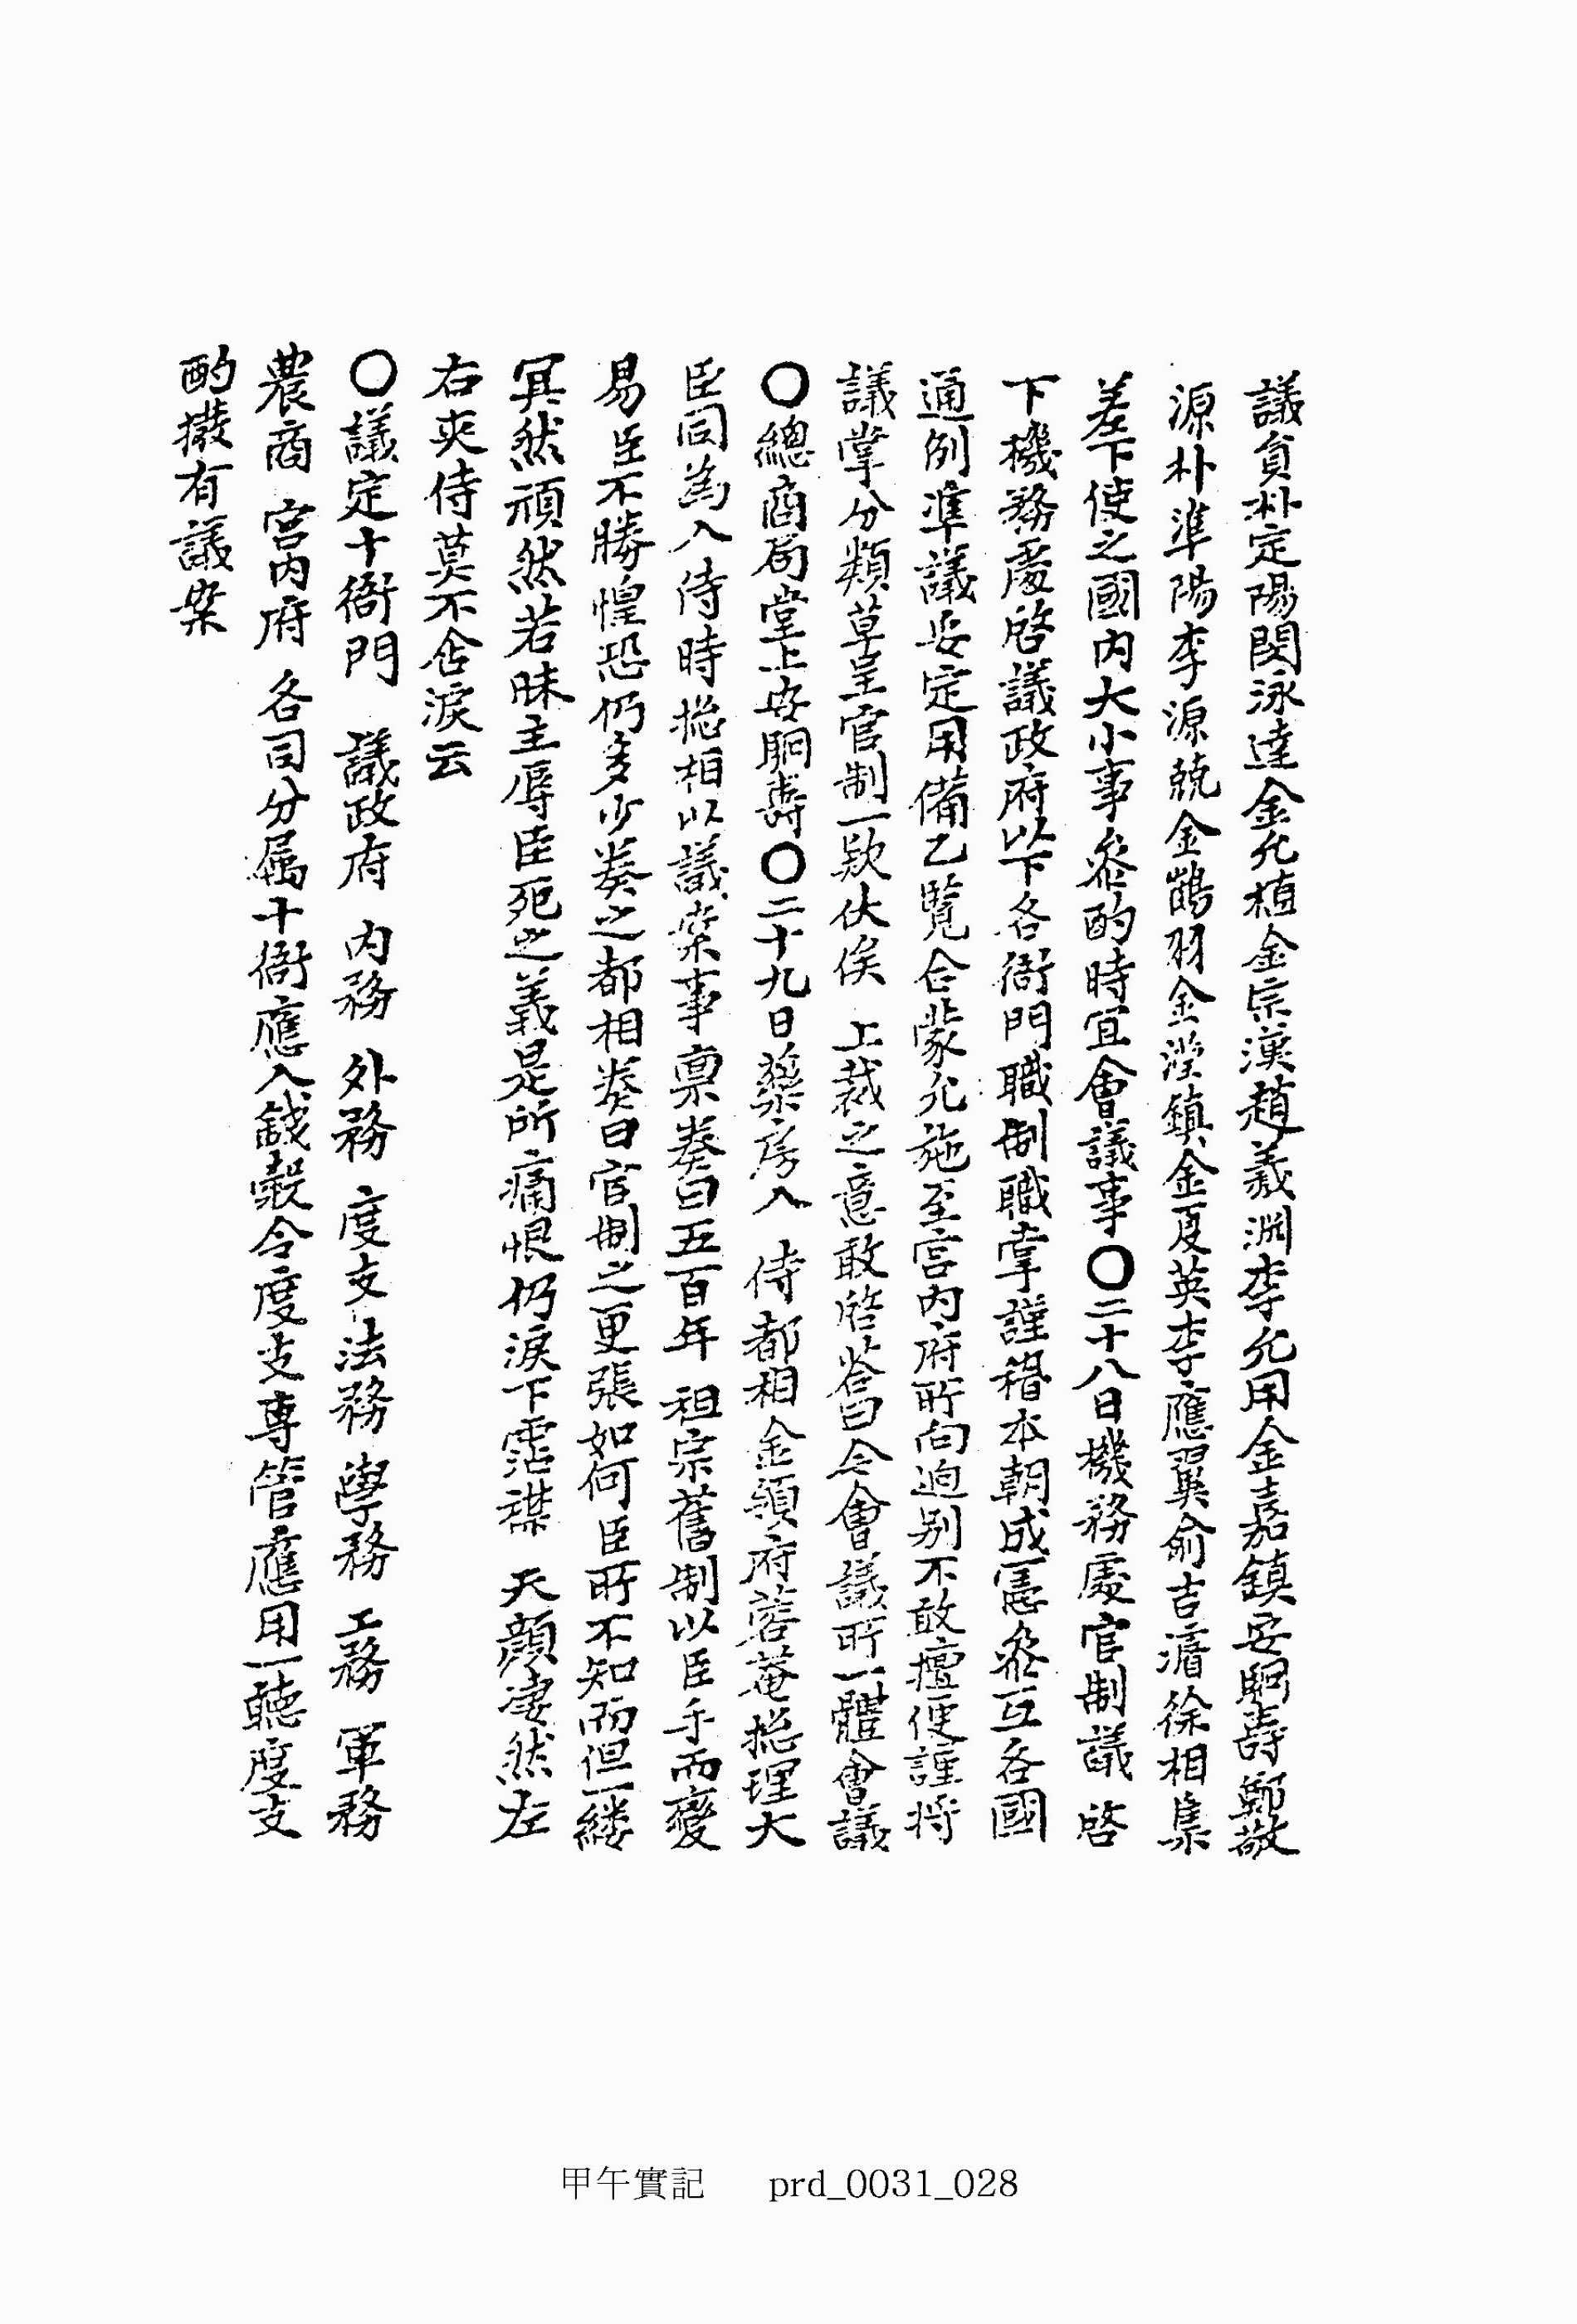 議負朴定陽閔泳達金允植金宗漢趙義淵李允用金嘉鎮安駉壽鄭敬
源朴準陽李源兢金鶴羽金瀅鎮金夏英李應翼俞吉濬徐相集
差下使之國內大小事叅酌時宜會議事〇二十八日機務處官制議 啓
下機務處啓議政府以下各衙門職制職掌謹稽本朝成憲叅互各國
通例準議妥定用備乙覽仝蒙允施至宮內府所向逈別不敢擅便謹將
議掌分類草呈官制一欵伏俟 上裁之意敢啓答曰今會議所一體會議
〇總商局堂上安駉壽〇二十九日藥房入 侍都相金領府蓉菴摠理大
臣同爲入侍時摠相以議案事稟奏曰五百年 祖宗舊制以臣手而變
易臣不勝惶恐仍多少奏之都相奏曰官制之更張如何臣所不知而但一縷
冥然頑然若昧主辱臣死之義是所痛恨仍淚下霑襟 天顔凄然左
右夾侍莫不含淚云
〇議定十衙門 議政府 內務 外務 度支 法務 學務 工務 軍務
農商 宮內府 各司分屬十衙應入錢穀令度支專管應用一聽度支
酌撥有議案
甲午實記 prd_0031_028